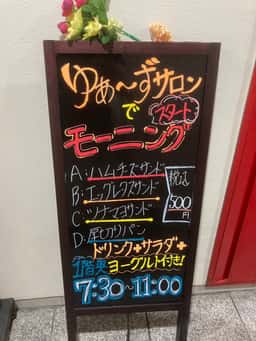 ゆぁ～ずサロン
で
スタート
モーニング
A:ハムチーズサンド
B:エッグレタスサンド
C:ツナマヨサンド
D:厚切りパン
税込
500
円
ドリンク+サラダ+
ヨーグルト付き!
7:30~11:00